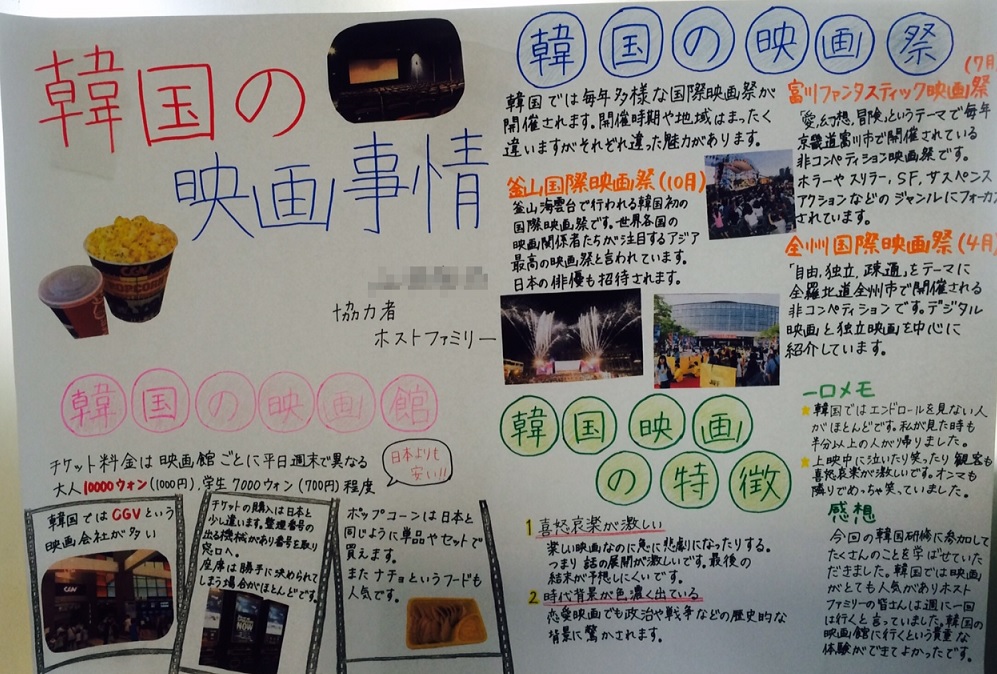 韓国の
映画事情
協力者
ホストファミリー
韓国の映画館
チケット料金は映画館ごとに平日週末で異なる
大人10000ウォン(1000円),学生7000ウォン(700円)程度
日本よりも
安い!!
韓国ではCGVという
映画会社が多い
チケットの購入は日本と
少し違います。整理番号の
出る機械があり番号を取り
窓口へ。
座席は勝手に決められて
しまう場合がほとんどです。
ポップコーンは日本と
同じように単品やセットで
買えます。
またナチョというフードも
人気です。
韓国の映画祭
韓国では毎年多様な国際映画祭が
開催されます。開催時期や地域はまったく
違いますがそれぞれ違った魅力があります。
釜山国際映画祭(10月)
釜山海雲台で行われる韓国初の
国際映画祭です。世界各国の
映画関係者たちが注目するアジア
最高の映画祭と言われています。
日本の俳優も招待されます。
(7月
富川ファンタスティック映画祭
「愛,幻想,冒険」というテーマで毎年
京畿道富川市で開催されている
非コンペティション映画祭です。
ホラーやスリラー,SF,サスペンス
アクションなどのジャンルにフォーカ
されています。
全州国際映画祭(4月
「自由,独立,疎通」をテーマに
全羅北道全州市で開催される
非コンペティションです。デジタル
映画と独立映画を中心に
紹介しています。
韓国映画
の特徴
1 喜怒哀楽が激しい
楽しい映画なのに急に悲劇になったりする。
つまり話の展開が激しいです。最後の
結末が予想しにくいです。
2 時代背景が色濃く出ている
恋愛映画でも政治や戦争などの歴史的な
背景に驚かされます。
一口メモ
★韓国ではエンドロールを見ない人
がほとんどです。私が見た時も
半分以上の人が帰りました。
★上映中に泣いたり笑ったり観客も
喜怒哀楽が激しいです。オンマも
隣りでめっちゃ笑っていました。
感想
今回の韓国研修に参加して
たくさんのことを学ばせていた
だきました。韓国では映画
がとても人気がありホスト
ファミリーの皆さんは週に一回
は行くと言っていました。韓国の
映画館に行くという貴重な
体験ができてよかったです。
CGV
POPCORN